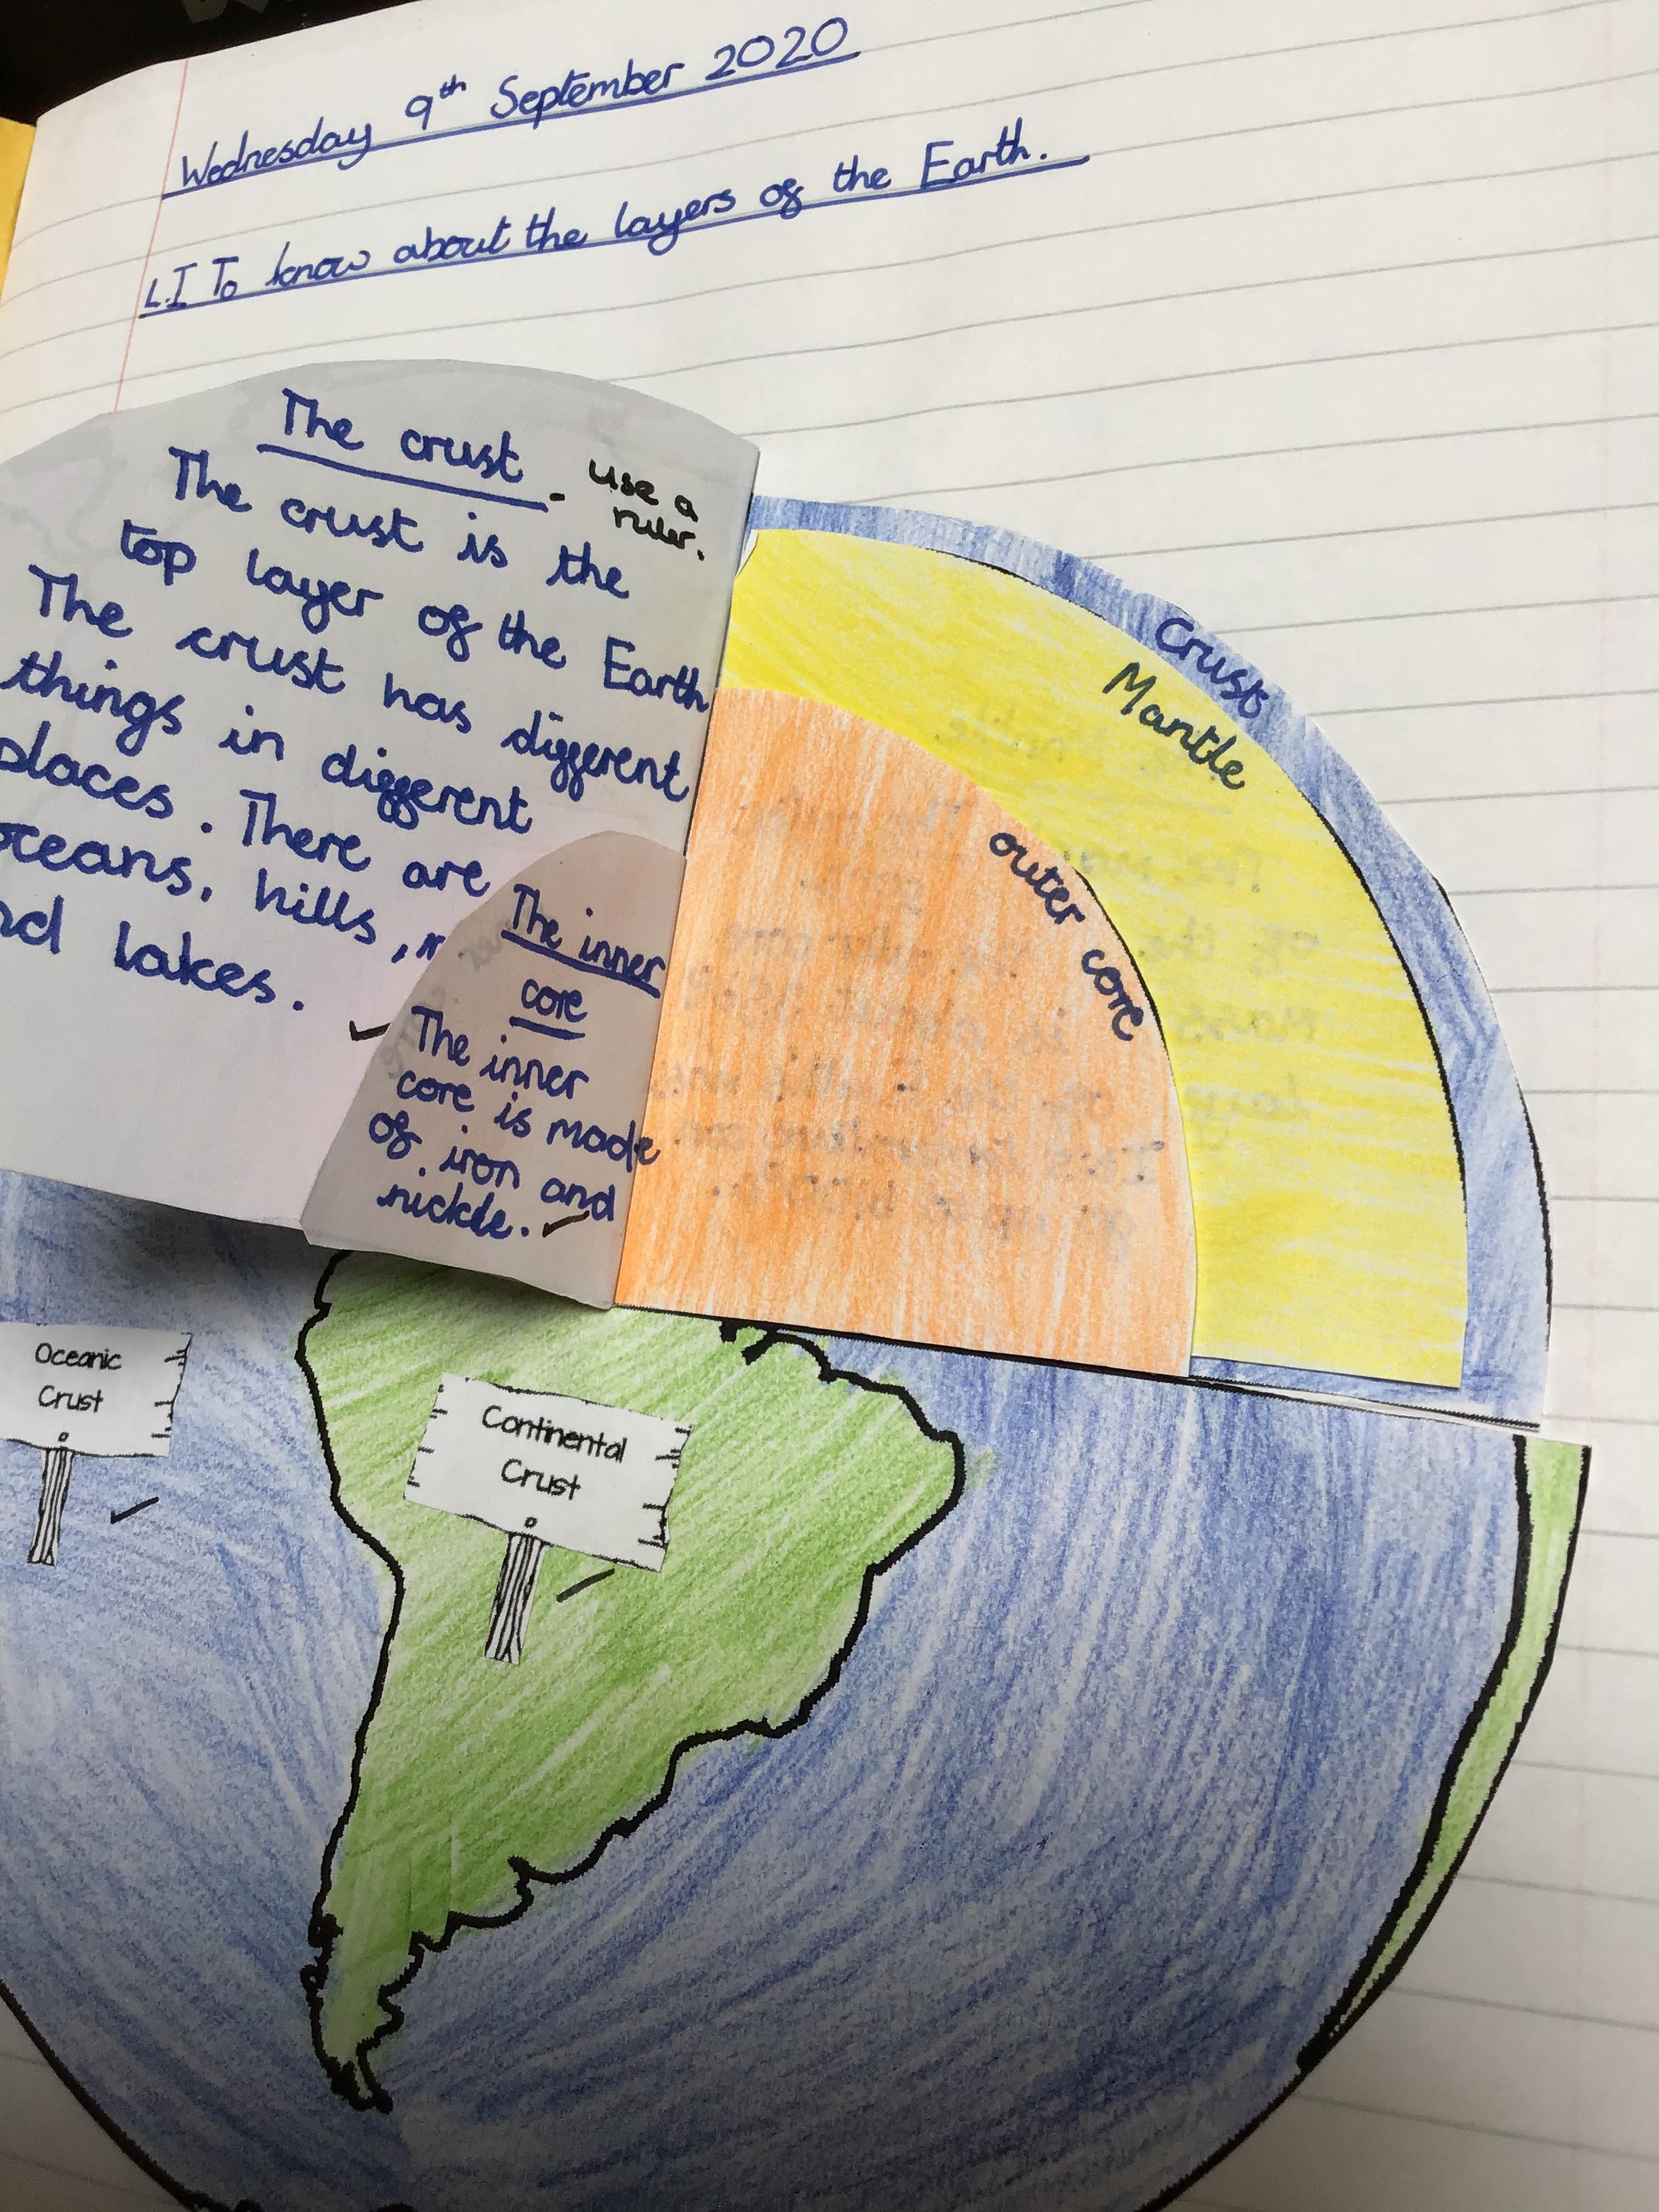 Wednesday 9th September 2020
L.I To know about the layers of the Earth.
The crust
- use a
ruler.
The crust is the
top layer of the Earth
The crust has different
things in different
places. There are
oceans, hills,
lakes.
The inner
core
The inner
core is made
of iron and
nickle.
Crust
Mantle
outer core
Oceanic
Crust
Continental
Crust